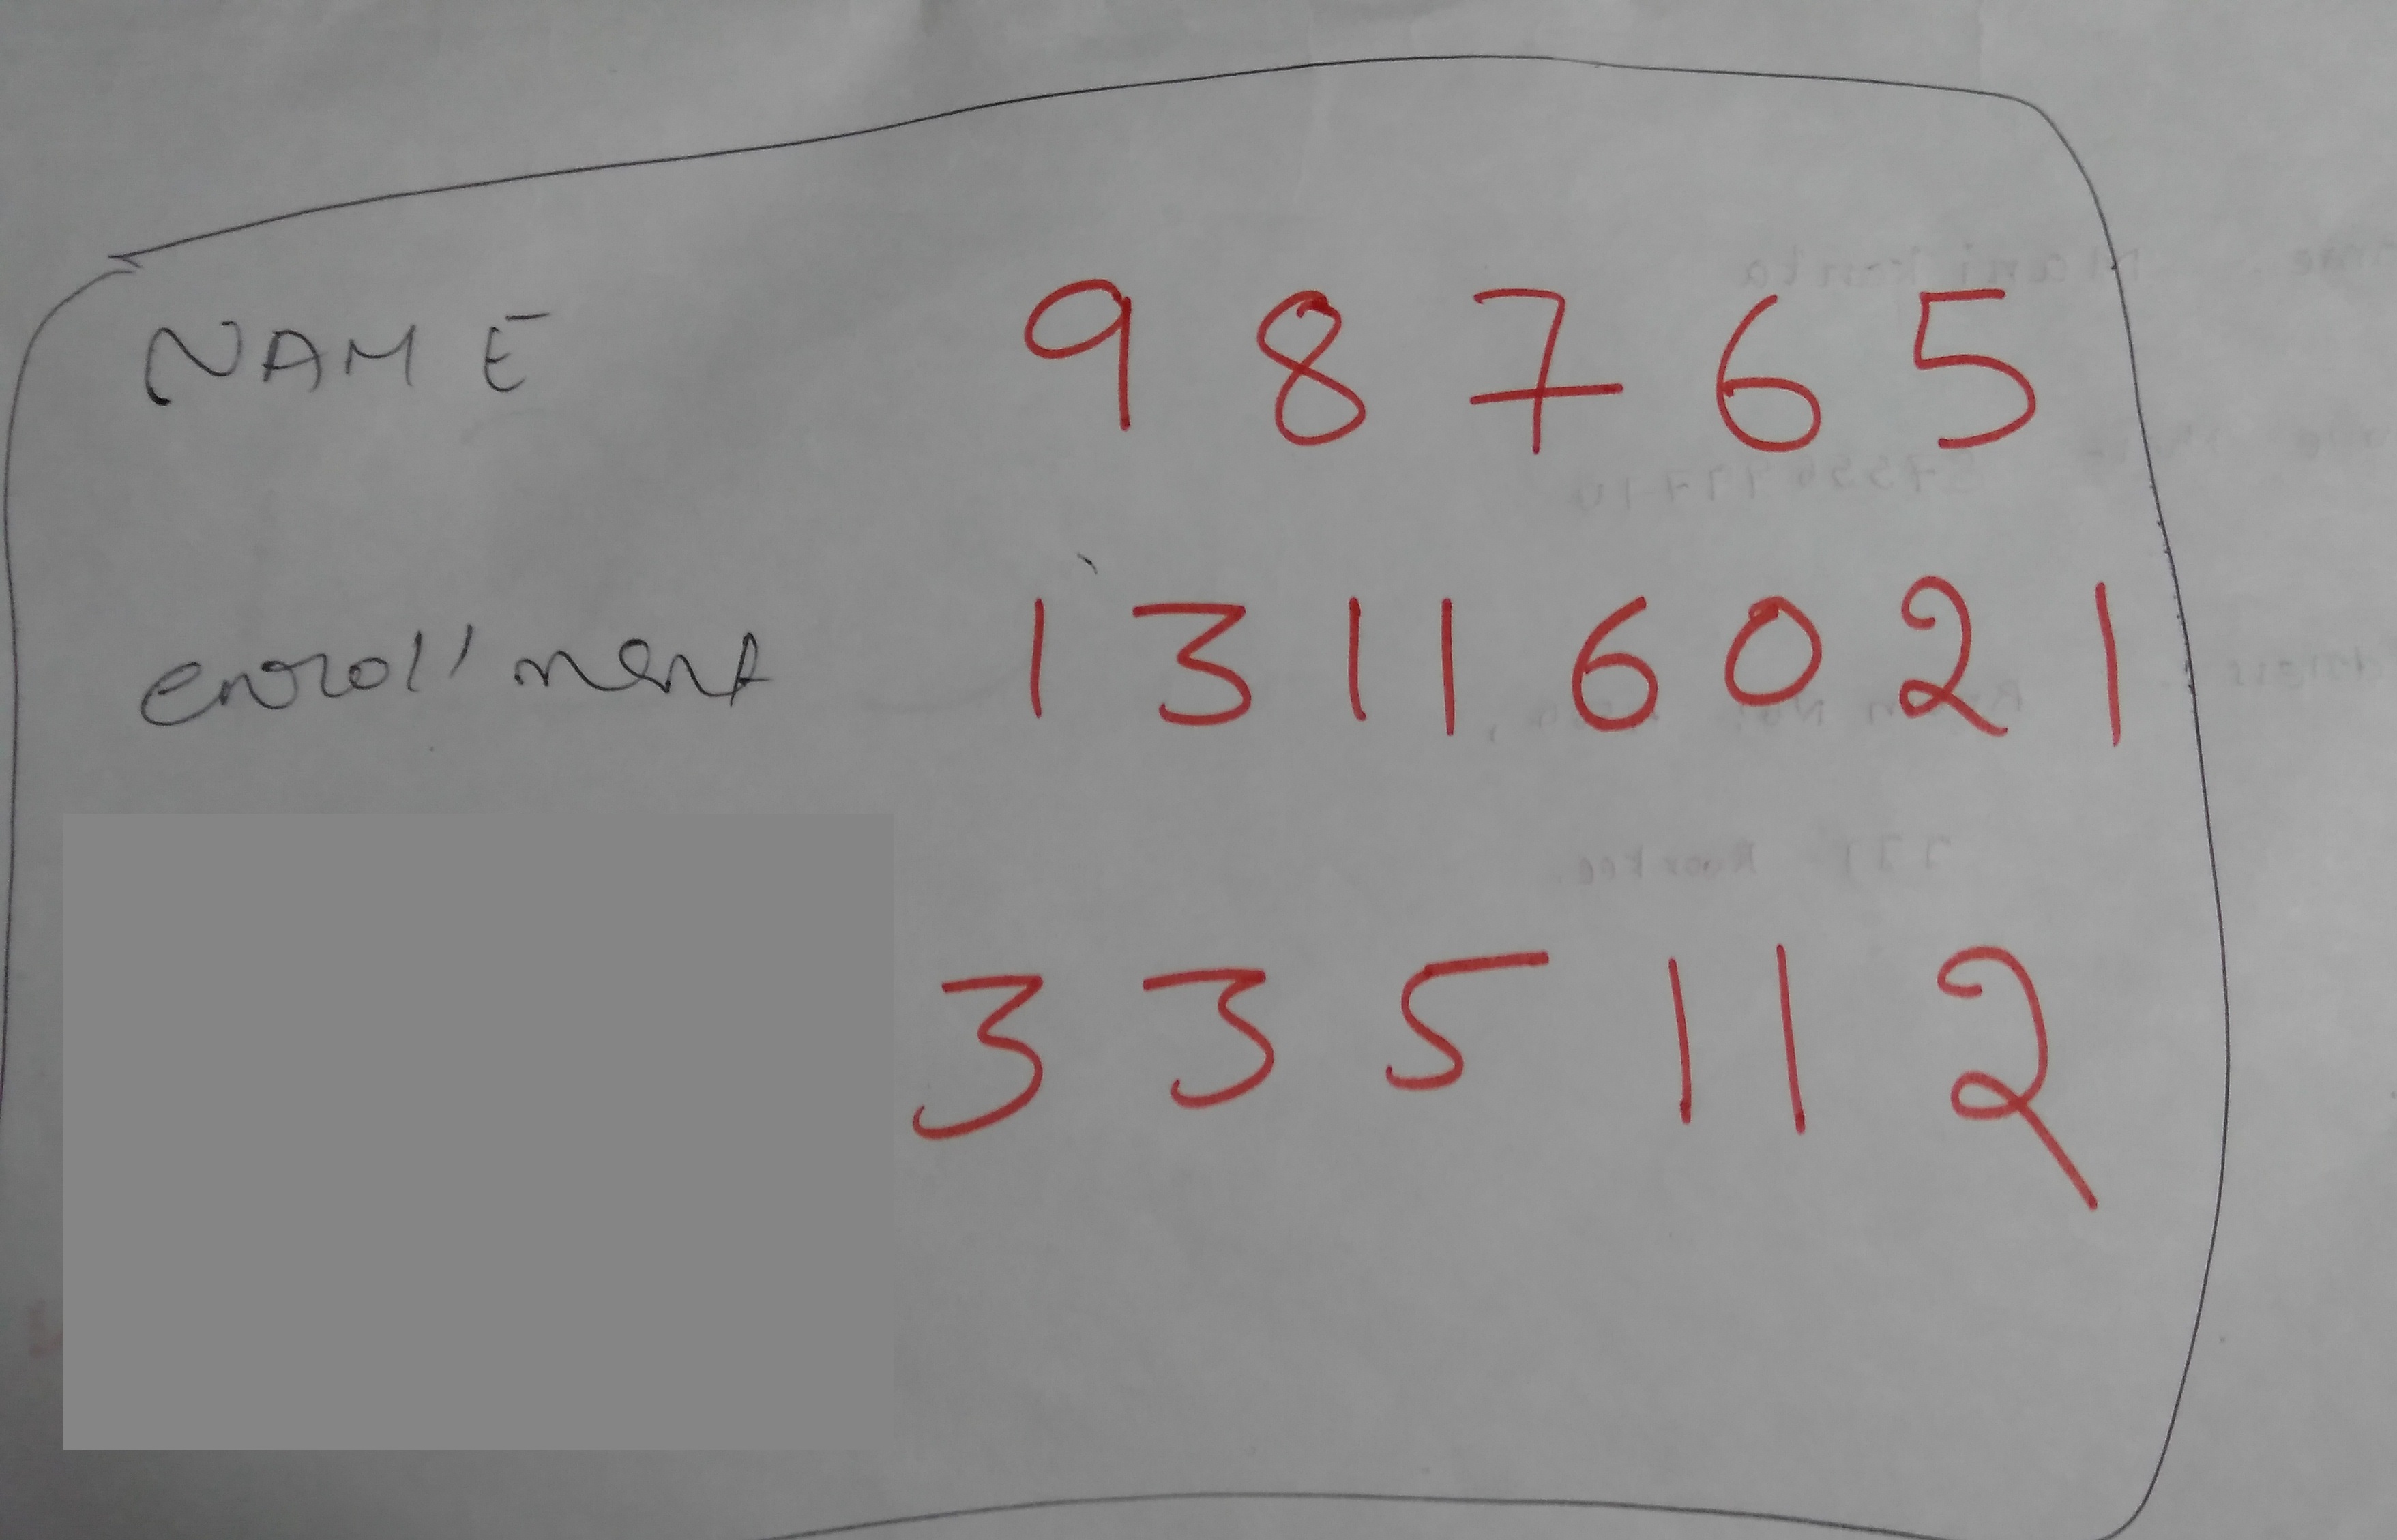 NAME 98765
enrollment 13116021
335112